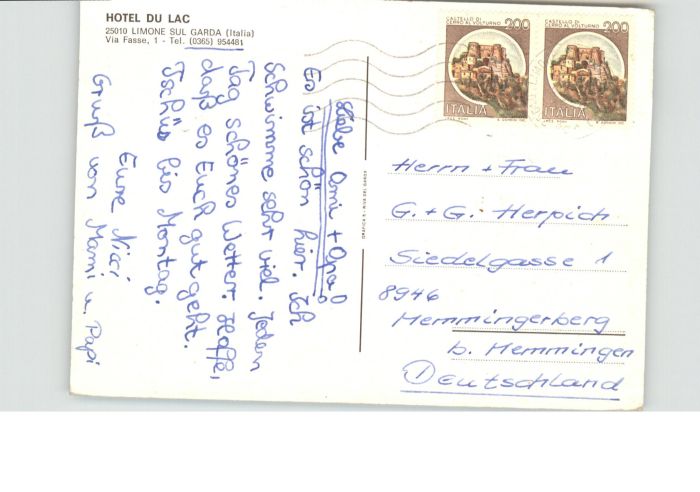 HOTEL DU LAC
25010 LIMONE SUL GARDA (Italia)
Via Fasse, 1 - Tel. (0365) 954481
CASTELLO DI
CERRO AL VOLTURNO
200
ITALIA
CASTELLO DI
CERRO AL VOLTURNO
200
ITALIA
Liebe Omi + Opa!
Es ist schön hier. Ich
schwimme sehr viel. Jeden
Tag schönes Wetter. Hoffe,
daß es Euch gut geht.
Tschüs bis Montag.
Eure Nici
Gruß von Mami u. Papi
Herrn + Frau
G. + G. Herpich
Siedelgasse 1
8946
Memmingerberg
b. Memmingen
Deutschland